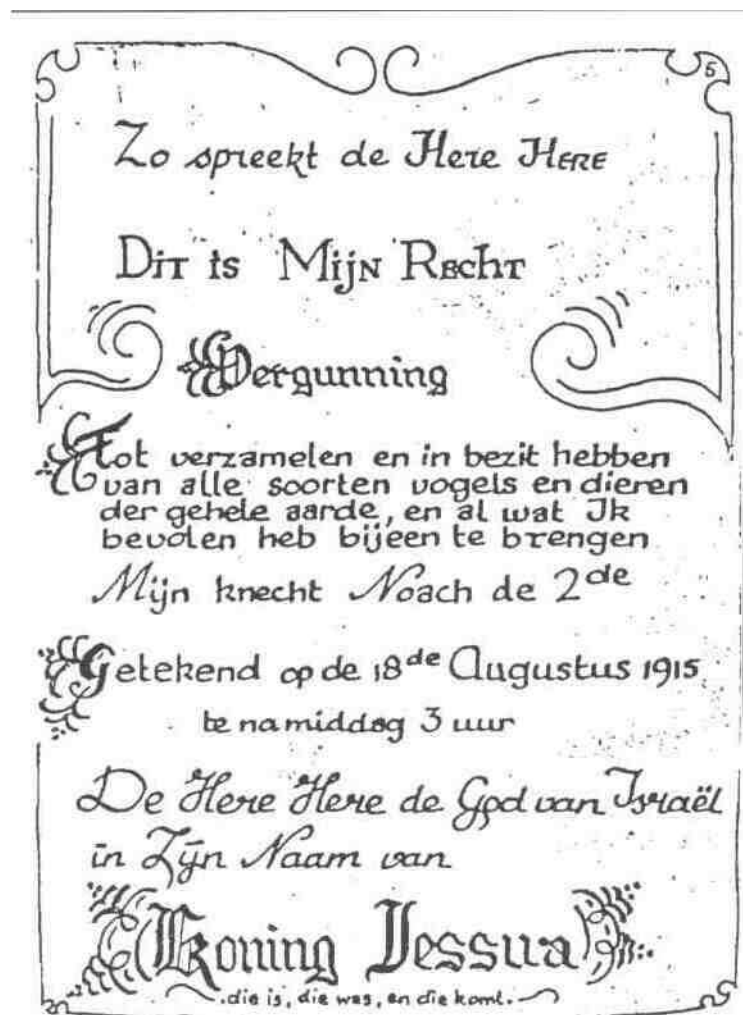 5
Zo spreekt de Here HERE
Dit is Mijn Recht
Vergunning
Tot verzamelen en in bezit hebben
van alle soorten vogels en dieren
der gehele aarde, en al wat Ik
bevolen heb bijeen te brengen
Mijn knecht Noach de 2de
Getekend op de 18de Augustus 1915
te namiddag 3 uur
De Here Here de God van Israël
in Zijn Naam van
Koning Jessua
die is, die was, en die komt.